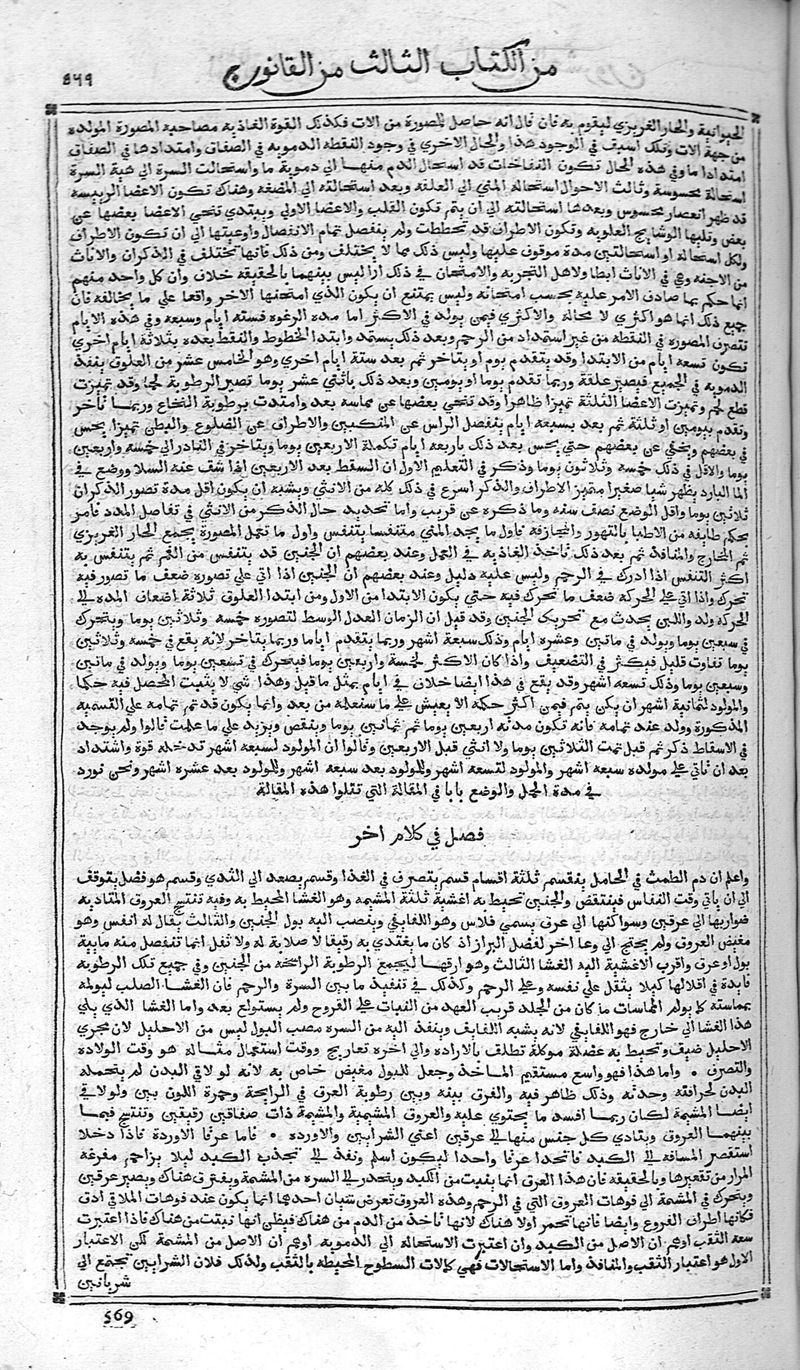 من الكتاب الثالث من القانون ٥٦٩
الحيوانية والحار الغريزي ليقوم به فان قال انه حاصل للصورة من الات فكذلك القوة الغاذيه مصاحبه المصورة المولده
من جهة الات وتلك اسبق في الوجود هذا والحال الاخري في وجود النقطه الدمويه في الصفاق وامتدادها في الصفاق
امتدادا ما وفي هذه الحال تكون النفاخات قد استحال الدم منها الي دموية ما واستحالت السرة الي هية السرة
استحالة محسوسة وثالث الاحوال استحالة المني الي العلقه وبعد استحالته الي المضغه وهناك تكون الاعضا الرييسه
قد ظهر انفصار محسوس وبعدها استحالته الي ان يتم تكون القلب والاعضا الاولي ويبتدي تنحي الاعضا بعضها عن
بعض وتليها الوشايج العلويه وتكون الاطراف قد تخططت ولم ينفصل تمام الانفصال واوعيتها الي ان تكون الاطراف
ولكل استحاله او استحالتين مدة موقوف عليها وليس ذلك مما لا يختلف ومن ذلك فانها تختلف في الذكران والاناث
من الاجنه وهي في الاناث ابطا ولاهل التجربه والامتحان في ذلك ارا ليس بينهما بالحقيقه خلاف وان كل واحد منهم
انما حكم بما صادف الامر عليه بحسب امتحانه وليس يمتنع ان يكون الذي امتحنها الاخر واقعا علي ما يخالفه فان
جميع ذلك انما هو اكثري لا محاله والاكثري فيمن يولد في الاكثر اما مده الرغوه فسته ايام وسبعه وفي هذه الايام
تتصرف المصوره في النقطه من غير استمداد من الرحم وبعد ذلك يستمد وابتدا الخطوط والنقط بعده بثلاثة ايام اخري
تكون تسعه ايام من الابتدا وقد يتقدم يوم او يتاخر ثم بعد ستة ايام اخري وهو الخامس عشر من العلوق ينفذ
الدمويه في الجميع فيصير علقة وربما تقدم يوما او يومين وبعد ذلك باثني عشر يوما تصير الرطوبة لحما وقد تميزت
قطع لحم وتميزت الاعضا الثلثة تميزا ظاهرا وقد تنحي بعضها عن مماسه بعد وامتدت رطوبة النخاع وربما تاخر
وتقدم بيومين او ثلثة ثم بعد بتسعه ايام ينفصل الراس عن المنكبين والاطراف عن الضلوع والبطن تميزا يحس
في بعضهم ويخفي عن بعضهم حتي يحس بعد ذلك باربعه ايام تكملة الاربعين يوما ويتاخر في النادر الي خمسه واربعين
يوما والاقل في ذلك خمسة وثلاثون يوما وذكر في التعليم الاول ان السقط بعد الاربعين اذا شف عنه السلا ووضع في
الما البارد يظهر شيا صغيرا متميز الاطراف والذكر اسرع في ذلك كله من الانثي ويشبه ان يكون اقل مدة تصور الذكران
ثلاثين يوما واقل الوضع نصف سنه وما ذكره عن قريب واما تحديد حال الذكر من الانثي في تفاصيل المدد فامر
يحكم طايفه من الاطبا بالتهور والمجازفه فاول ما يجد المني متنفسا يتنفس واول ما تعمل المصورة يجمع الحار الغريزي
ثم المخارج والمنافذ ثم بعد ذلك تاخذ الغاذيه في العمل وعند بعضهم ان الجنين قد يتنفس من الفم ثم يتنفس به
اكثر التنفس اذا ادرك في الرحم وليس عليه دليل وعند بعضهم ان الجنين اذا اتي علي تصوره ضعف ما تصور فيه
تحرك واذا اتي علي الحركه ضعف ما تحرك فيه حتي يكون الابتدا من الاول ومن ابتدا العلوق ثلاثة اضعاف المده الي
الحركة ولد واللبن يحدث مع تحريك الجنين وقد قيل ان الزمان العدل الوسط لتصوره خمسة وثلاثين يوما ويتحرك
في سبعين يوما ويولد في ماتين وعشره ايام وذلك سبعة اشهر وربما يتقدم اياما وربما يتاخر لانه يقع في خمسه وثلاثين
يوما تفاوت قليل فيكثر في التضعيف واذا كان الاكثر لخمسة واربعين يوما فيتحرك في تسعين يوما ويولد في ماتين
وسبعين يوما وذلك تسعه اشهر وقد يقع في هذا ايضا خلاف في ايام بمثل ما قيل وهذا شي لا يثبت المحصل فيه حكما
والمولود لثمانية اشهر ان يكن يتم فيمن اكثر حكمه الا يعيش علي ما سنعلمه من بعد وانما يكون قد تم تمامه علي القسميه
المذكورة وولد عند تمامه فانه تكون مدته اربعين يوما ثم ثمانين يوما وينقص ويزيد علي ما علمت قالوا ولم يوجد
في الاسقاط ذكر تم قبل تمت الثلاثين يوما ولا انثي قبل الاربعين وقالوا ان المولود لسبعه اشهر تدخله قوة واشتداد
بعد ان تاتي علي مولده سبعه اشهر والمولود لتسعه اشهر وللمولود بعد سبعه اشهر وللمولود بعد عشره اشهر ونحن نورد
في مدة الحمل والوضع بابا في المقالة التي تتلوا هذه المقالة
فصل في كلام اخر
واعلم ان دم الطمث في الحامل ينقسم ثلثة اقسام قسم يتصرف في الغذا وقسم يصعد الي الثدي وقسم هو فضل يتوقف
الي ان ياتي وقت النفاس فينتقض والجنين تحيط به اغشية ثلثة المشيمه وهو الغشا المحيط به وفيه تنتسج العروق المتاديه
ضواربها الي عرقين وسواكنها الي عرق يسمي فلاس وهو اللفايفي وينصب اليه بول الجنين والثالث يقال له انفس وهو
مغيض العروق ولم يحتج الي وعا اخر لفضل البراز اذ كان ما يغتدي به رقيقا لا صلابة له ولا ثفل انما تنفصل منه مايية
بول او عرق واقرب الاغشية اليه الغشا الثالث وهو ارقها ليجمع الرطوبة الراشحة من الجنين وفي جميع تلك الرطوبه
فايدة في اقلالها كيلا يثقل علي نفسه وعلي الرحم وكذلك في تنفيذ ما بين السرة والرحم فان الغشا الصلب ليولمه
بمماسته كما يولم المماسات ما كان من الجلد قريب العهد من النبات علي القروح ولم يستولع بعد واما الغشا الذي يلي
هذا الغشا الي خارج فهو اللفايفي لانه يشبه اللفايف وينفذ اليه من السره مصب البول ليس من الاحليل لان مجري
الاحليل ضيف وتحيط به عضلة موكلة تطلف بالاراده والي اخره تعاريج ووقت استعمال مثاله هو وقت الولاده
والتصرف • واما هذا فهو واسع مستقيم الماخذ وجعل للبول مغيض خاص به لانه لو لاقي البدن لم يتحمله
البدن لحرافته وحدته وذلك ظاهر فيه والفرق بينه وبين رطوبة العرق في الرايحة وحمرة اللون بين ولولا في
ايضا المشيمة لكان ربما افسد ما يحتوي عليه والعروق المشيمية والمشيمة ذات صفاقين رقيقين وتنتسج فيما
بينهما العروق ويتادي كل جنس منها الي عرقين اعني الشرايين والاورده • فاما عرقا الاوردة فاذا دخلا
استقصر المسافه الي الكبد فاتحدا عرقا واحدا ليكون اسلم ونفذ الي تحدب الكبد ليلا يزاحم مفرغه
المرار من تقعيرها وبالحقيقه فان هذا العرق انما ينبت من الكبد وينحدر الي السره من المشيمة ويفترق هناك ويصير عرقين
ويتحرك في المشيمة الي فوهات العروق التي في الرحم وهذه العروق تعرض شيان احدهما انما يكون عند فوهات الملاقي ادق
فكانها اطراف الفروع وايضا فانها تحمر اولا هناك لانها تاخذ من الدم من هناك فيظن انها نبتت من هناك فاذا اعتبرت
سعه الثقب اوهم ان الاصل من الكبد وان اعتبرت الاستحالة الي الدمويه اوهم ان الاصل من المشمة لكن الاعتبار
الاول هو اعتبار الثقب والمنافذ واما الاستحالات فهي كمالات السطوح المحيطه بالثقب ولذلك فلان الشرايين تجتمع الي
شريانين
569